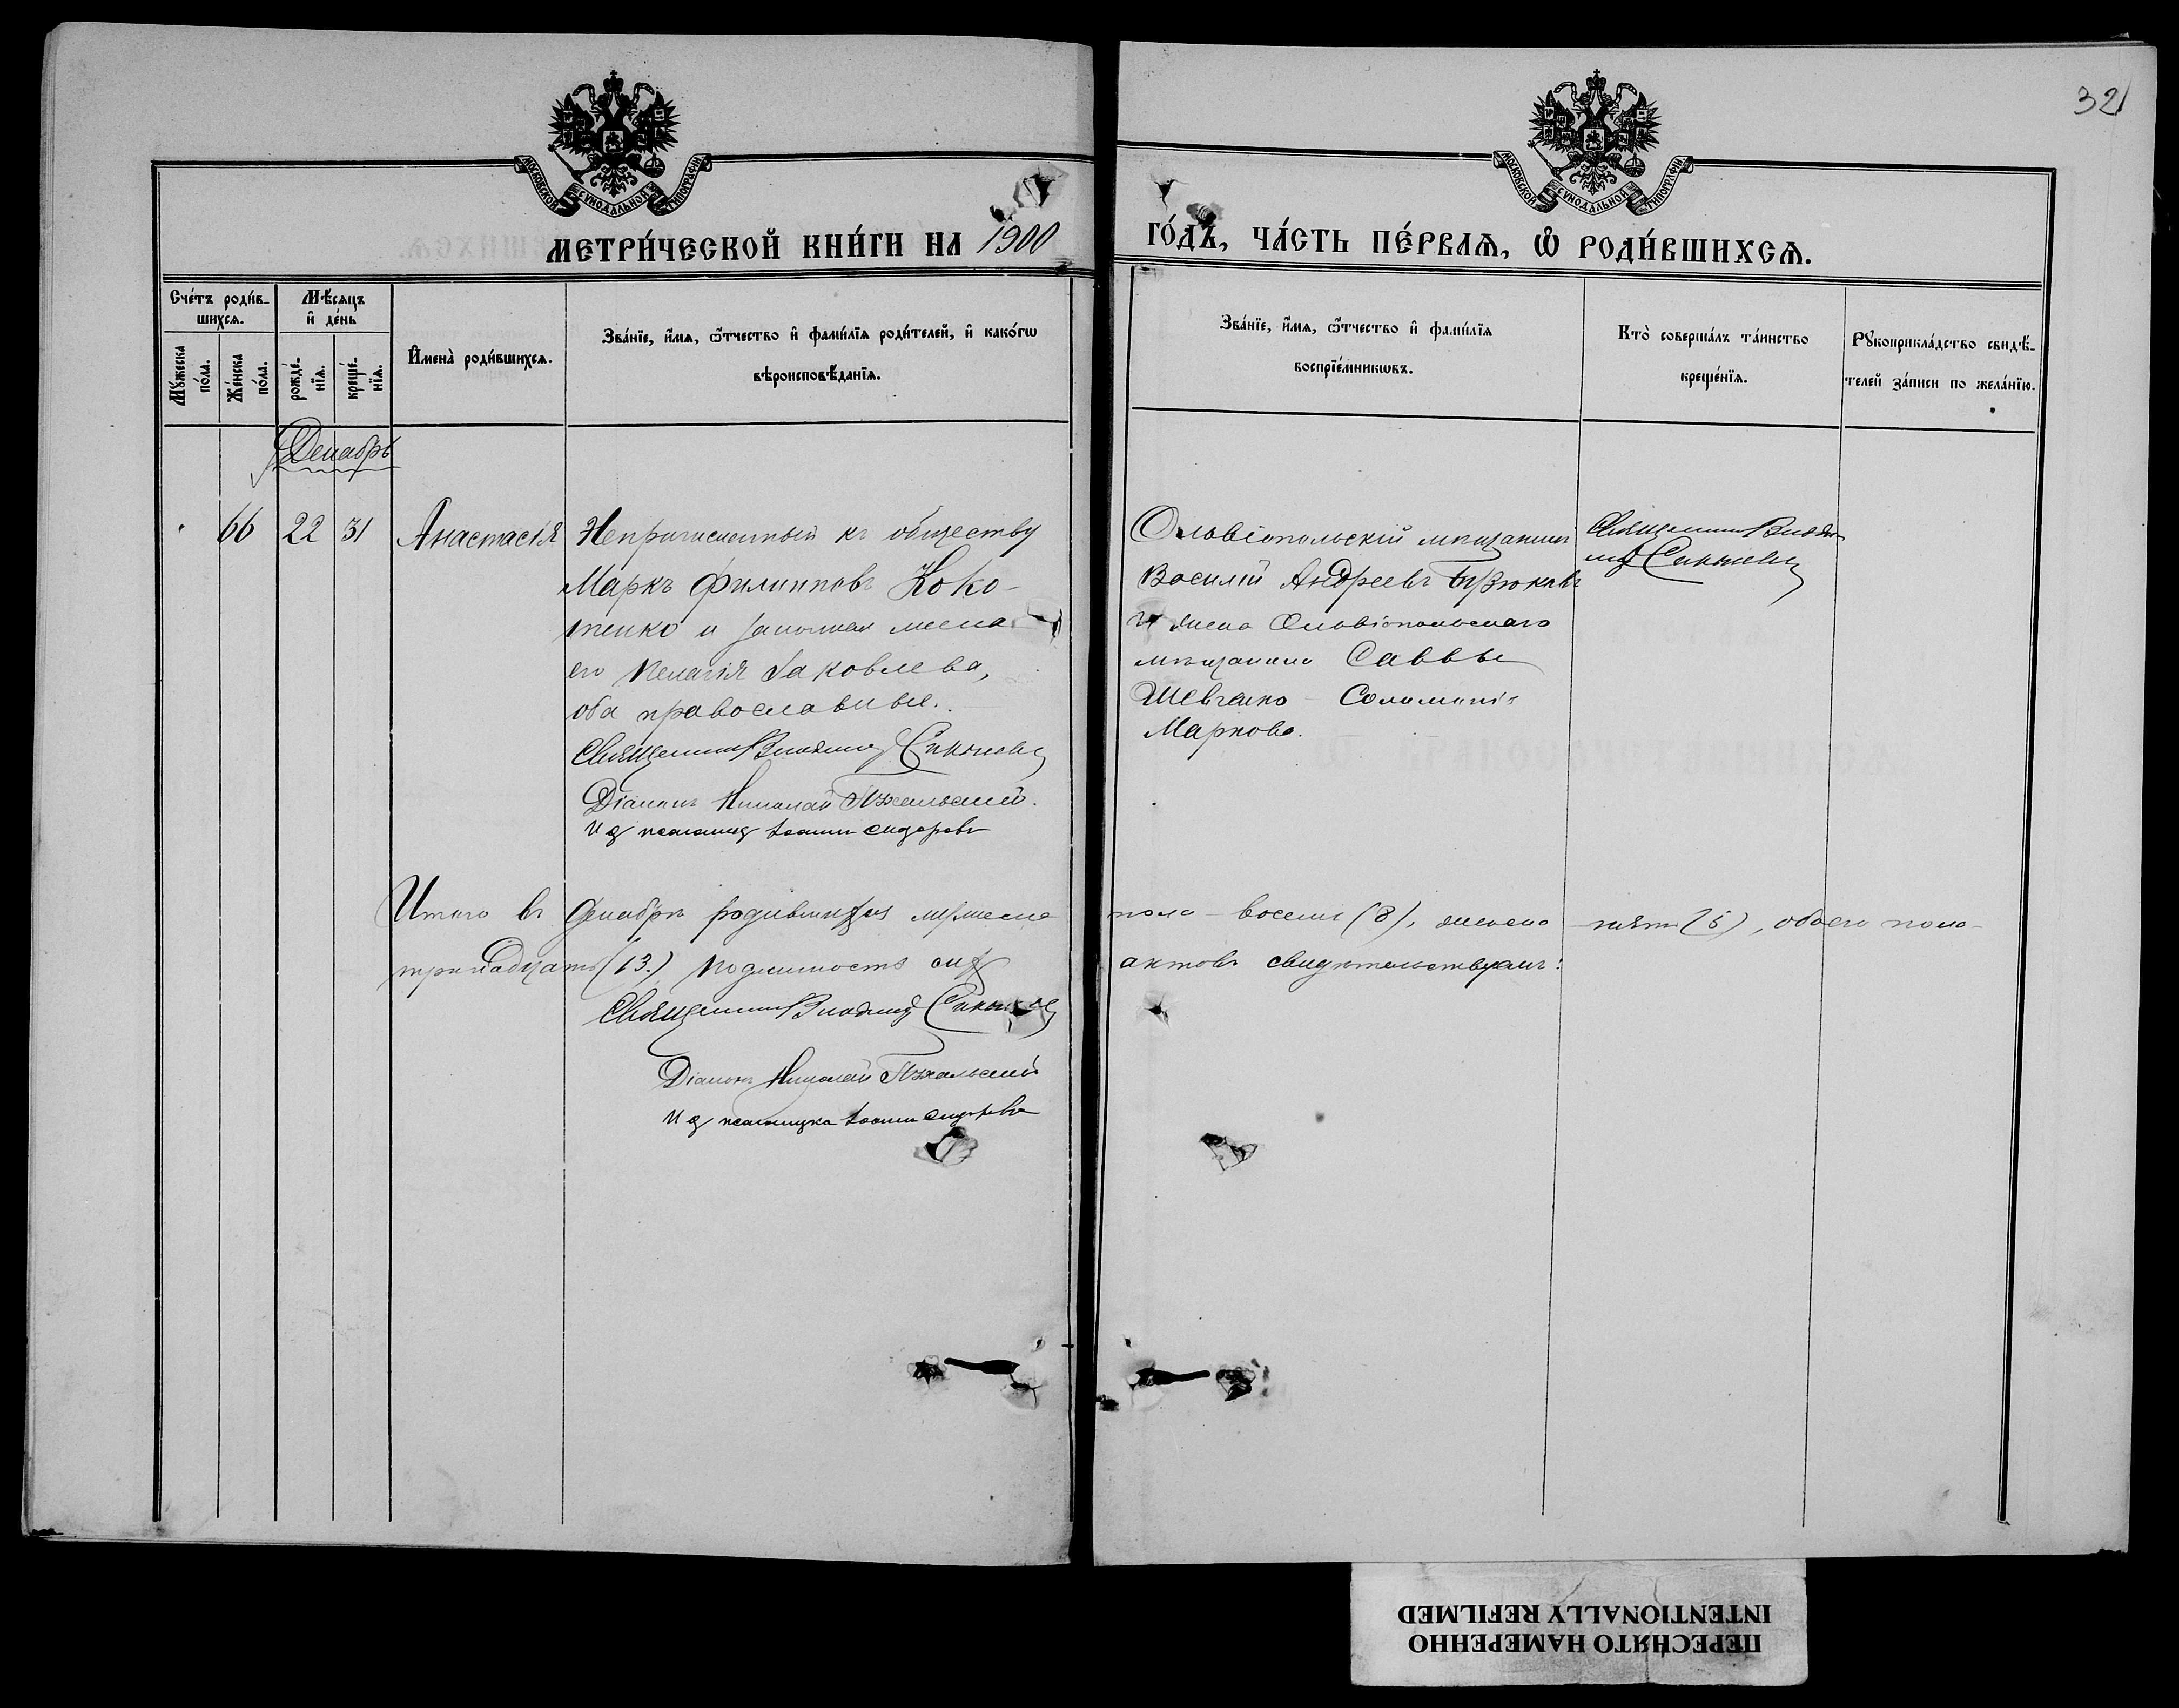 32
МОСКОВСКОЙ СѴНОДАЛЬНОЙ ТИПОГРАФІИ
МОСКОВСКОЙ СѴНОДАЛЬНОЙ ТИПОГРАФІИ
МЕТРИ́ЧЕСКОЙ КНИ́ГИ НА 1900 ГО́ДЪ, ЧА́СТЬ ПЕ́РВАѦ, Ѡ҆ РОДИ́ВШИХСѦ.
Сче́тъ роди́в-
шихсѧ.
Мѣ́сѧцъ
и҆ де́нь
Мꙋ́жеска
по́ла.
Же́нска
по́ла.
рожде́-
нїѧ.
креще́-
нїѧ.
И҆мена̀ роди́вшихсѧ.
Зва́нїе, и҆́мѧ, ѻ҆́тчество и҆ фами́лїѧ роди́телей, и҆ како́гѡ
вѣроисповѣ́данїѧ.
Зва́нїе, и҆́мѧ, ѻ҆́тчество и҆ фами́лїѧ
воспрїе́мникѡвъ.
Кто̀ соверша́лъ та́инство
креще́нїѧ.
Рꙋкоприкла́дство свидѣ́-
телей за́писи по жела́нїю.
Декабрь
66 22 31 Анастасія
Непричисленный къ обществу
Маркъ Филипповъ Коко-
тенко и законная жена
его Пелагія Іаковлева,
оба православные.
Священникъ Владимір
Діаконъ Николай
И д псаломщ Іоаннъ Сидоровъ
Ольвіопольскій мѣщанинъ
Василій Андреевъ
и жена Ольвіопольскаго
мѣщанина Саввы
Шевченко - Соломонія
Маркова.
Священникъ Влади-
міръ
Итого въ Декабрѣ родившихся мужеска пола - восемь (8), женска - пять (5), обоего пола -
тринадцать (13.) Подлинность сихъ актовъ свидѣтельствуемъ:
Священникъ Владимір
Діаконъ Николай
И д псаломщика Іоаннъ Сидоровъ
ПЕРЕСНЯТО НАМЕРЕННО
INTENTIONALLY REFILMED